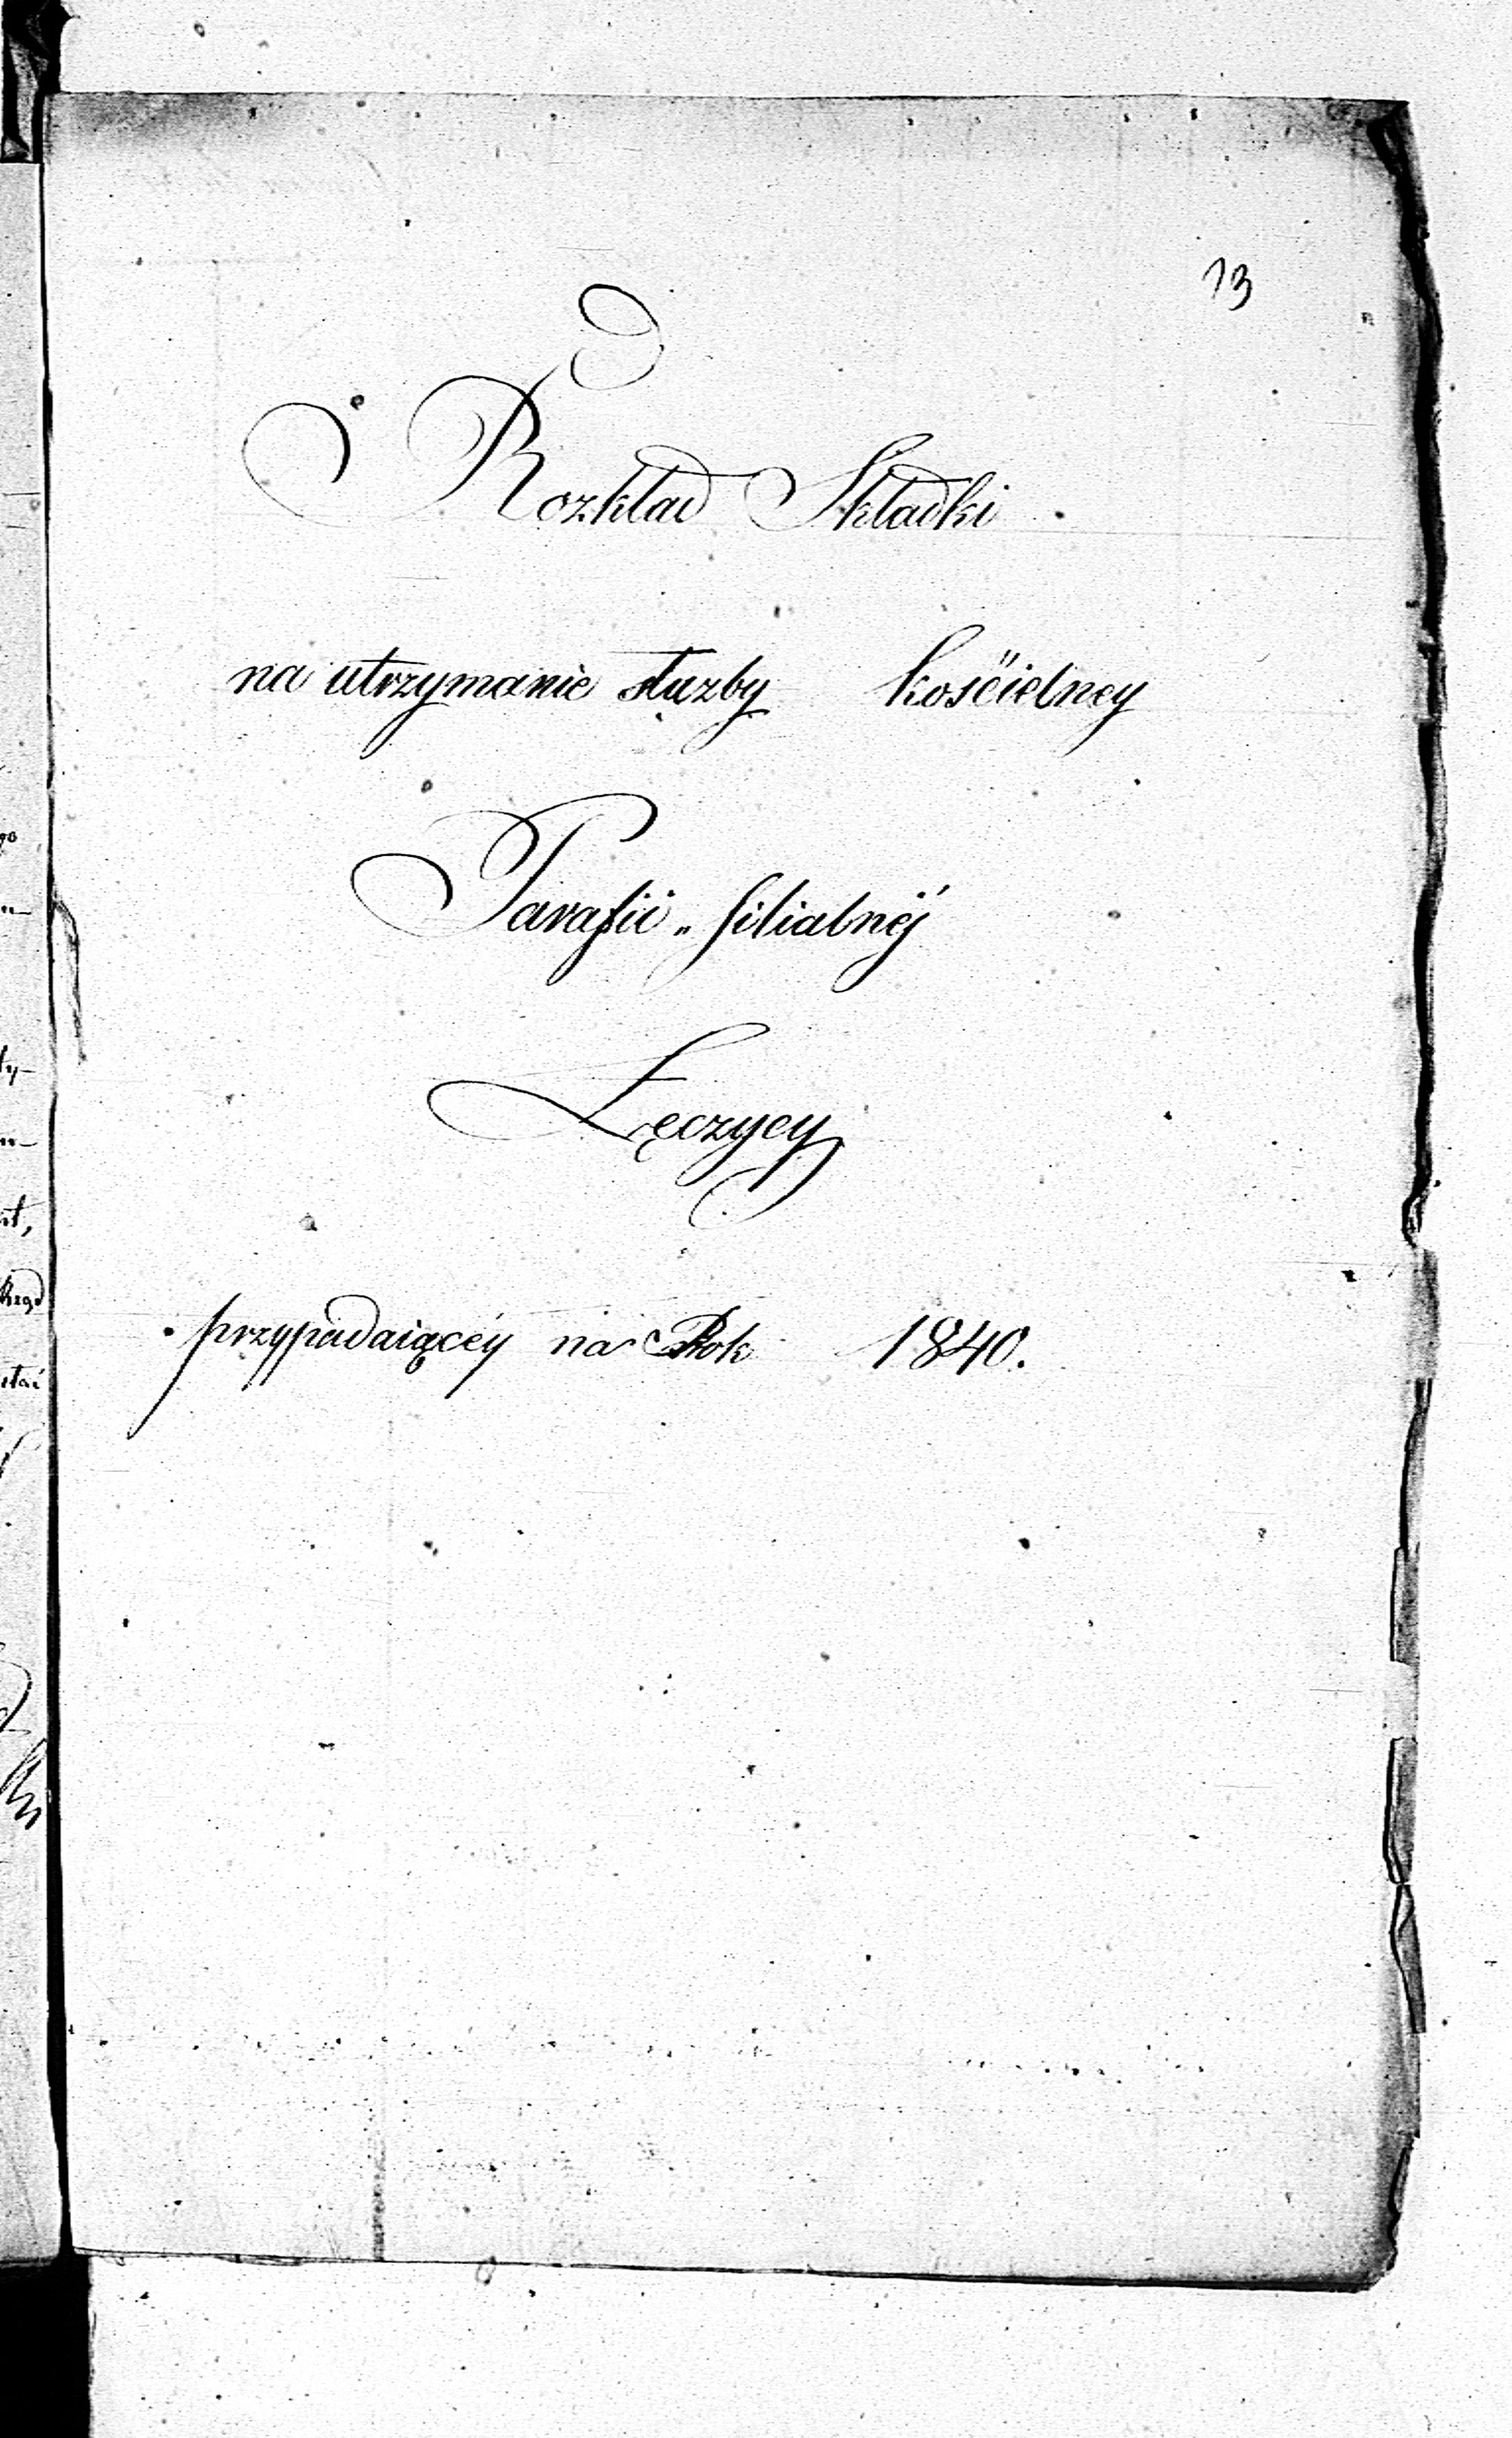 13
Rozkład Składki
na utrzymanie służby kościelney
Parafii „ filialnéj
Łęczycy
przypadaiącéy na Rok 1840.